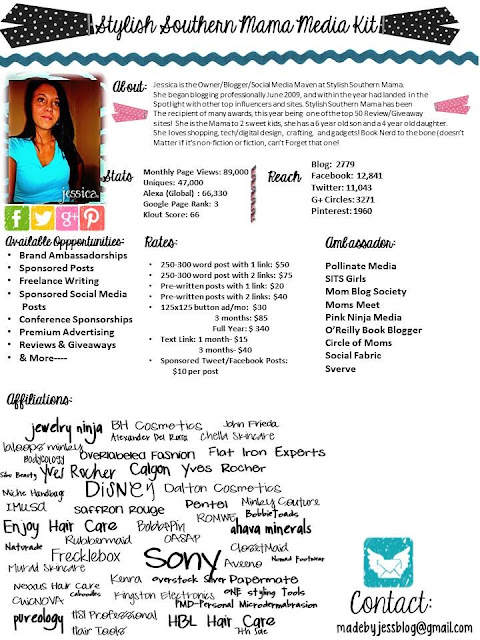 Stylish Southern Mama Media Kit
About:
Jessica is the Owner/Blogger/Social Media Maven at Stylish Southern Mama.
She began blogging professionally June 2009, and within the year had landed in the
Spotlight with other top influencers and sites. Stylish Southern Mama has been
The recipient of many awards, this year being one of the top 50 Review/Giveaway
sites! She is the Mama to 2 sweet kids, she has a 6 year old son and a 4 year old daughter.
She loves shopping, tech/digital design, crafting, and gadgets! Book Nerd to the bone (doesn't
Matter if it's non-fiction or fiction, can't Forget that one!
jessica
Stats
Monthly Page Views: 89,000
Uniques: 47,000
Alexa (Global) : 66,330
Google Page Rank: 3
Klout Score: 66
Reach
Blog: 2779
Facebook: 12,841
Twitter: 11,043
G+ Circles: 3271
Pinterest: 1960
Available Oppportunities:
• Brand Ambassadorships
• Sponsored Posts
• Freelance Writing
• Sponsored Social Media
Posts
• Conference Sponsorships
• Premium Advertising
• Reviews & Giveaways
• & More----
Rates:
• 250-300 word post with 1 link: $50
• 250-300 word post with 2 links: $75
• Pre-written posts with 1 link: $20
• Pre-written posts with 2 links: $40
• 125x125 button ad/mo: $30
3 months: $85
Full Year: $ 340
• Text Link: 1 month- $15
3 months- $40
• Sponsored Tweet/Facebook Posts:
$10 per post
Ambassador:
Pollinate Media
SITS Girls
Mom Blog Society
Moms Meet
Pink Ninja Media
O'Reilly Book Blogger
Circle of Moms
Social Fabric
Sverve
Affiliations:
jewelry ninja BH Cosmetics John Frieda
Alexander Del Rossa Chella Skincare
laloops minkey
Bodycology Overlabeled Fashion Flat Iron Experts
Sibu Beauty Yves Rocher Calgon Yves Rocher
Miche Handbags Disney Dalton Cosmetics
IMUSA Saffron Rouge Pentel Minkey Couture
ROMWE BobbieToads
Enjoy Hair Care BobbiPin ahava minerals
Rubbermaid OASAP
Naturade Frecklebox Sony ClosetMaid
Murad Skincare Aveeno Nomad Footwear
Nexxus Hair Care Kenra Overstock Silver Papermate
CHICNOVA Caboodles Kingston Electronics ONE Styling Tools
PMD-Personal Microdermabrasion
pureology HSI Professional HBL Hair Care
Hair Tools 7th Sale
Contact:
madebyjessblog@gmail.com